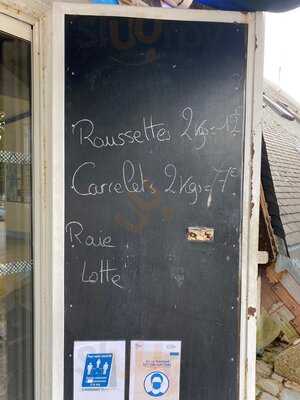 Roussettes 2 Kgs = 12€
Carrelets 2 Kgs = 7€
Raie
Lotte